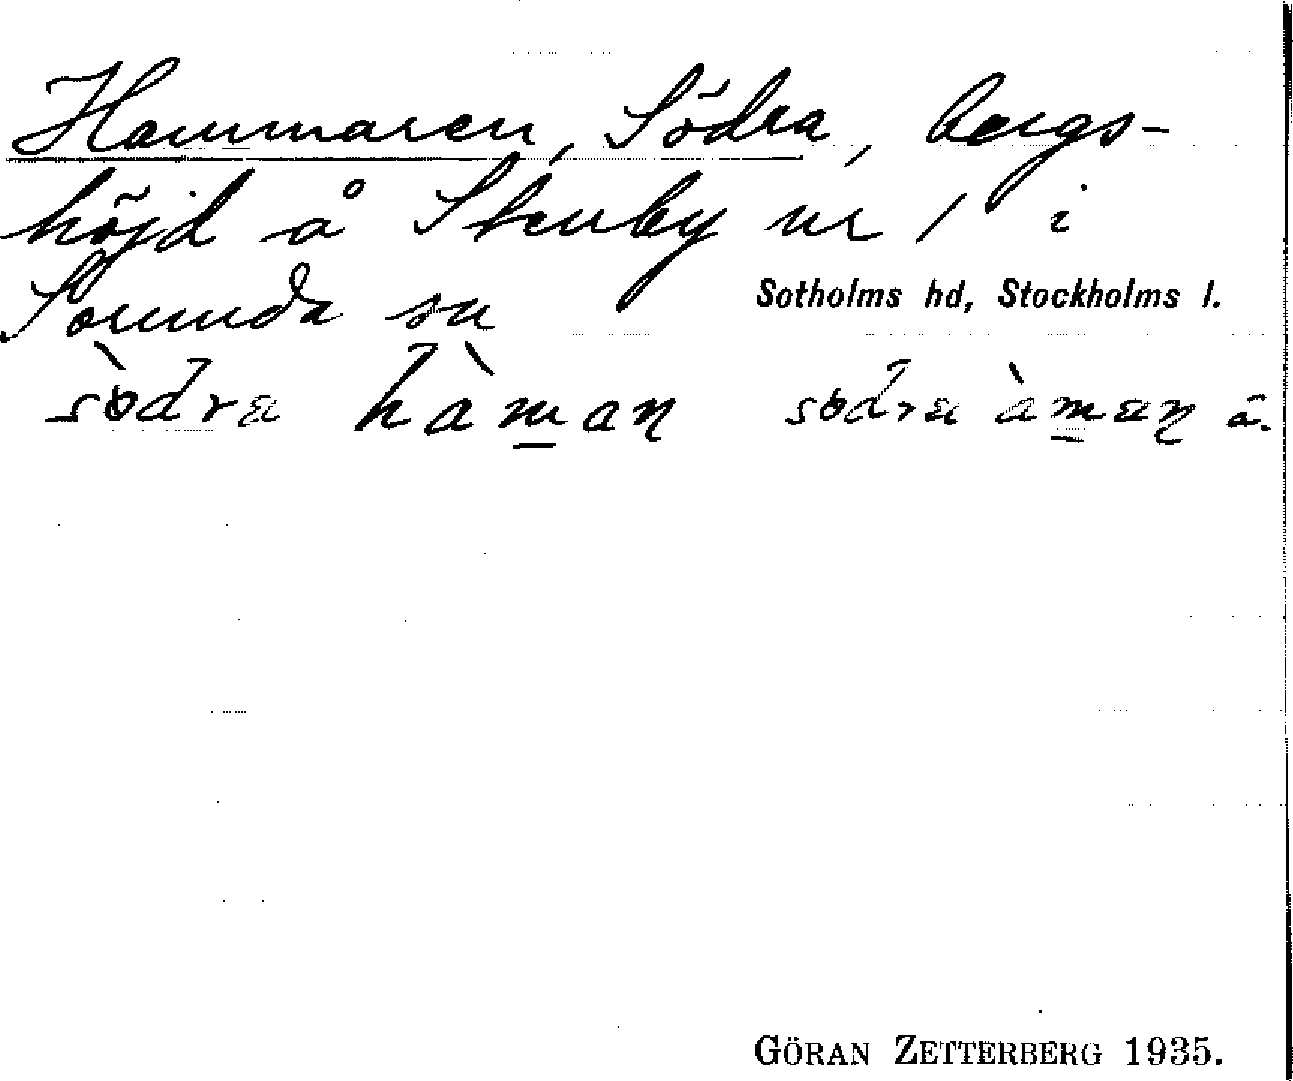 Hammaren, Södra, bergs-
höjd å Stenby nr 1 i
Sorunda sn
Sotholms hd, Stockholms l.
sὸdra hàman södra àman å.
GÖRAN ZETTERBERG 1935.